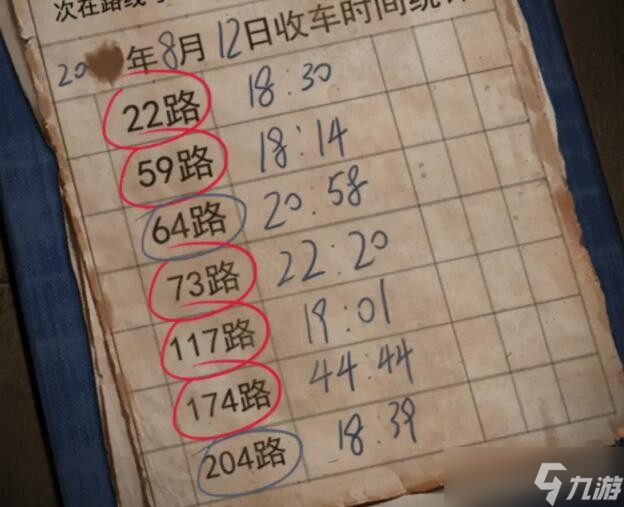 次在路线
20 年8月12日收车时间统计
22路 18:30
59路 18:14
64路 20:58
73路 22:20
117路 19:01
174路 44:44
204路 18:39
九游